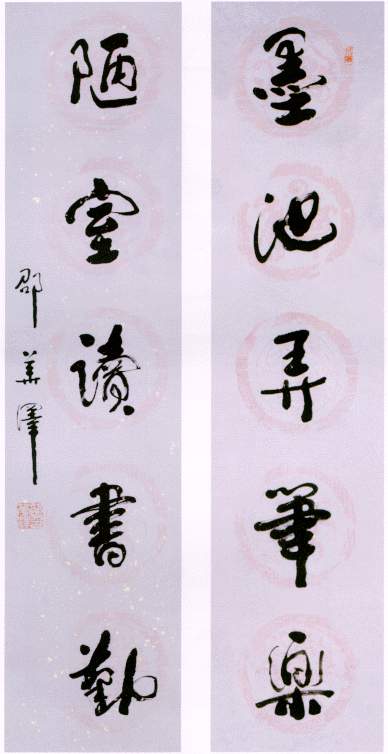 墨池弄筆樂
陋室讀書勤
邵華澤